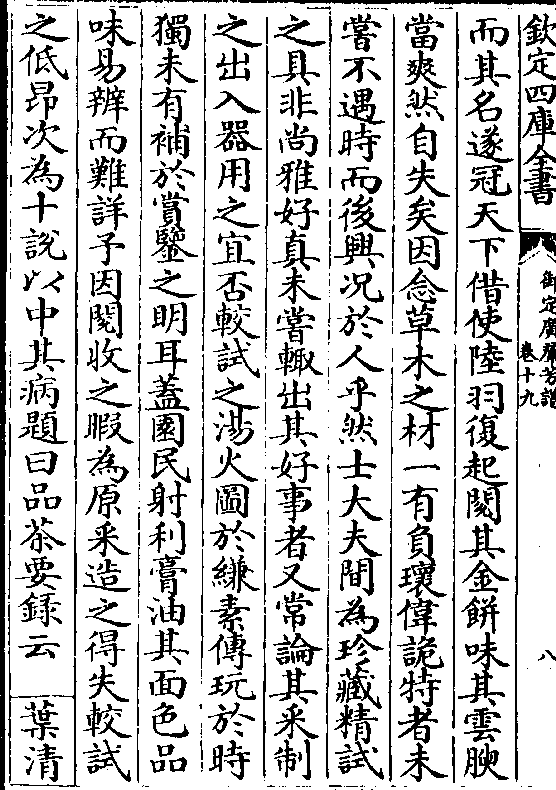 欽定四庫全書
御定廣羣芳譜
卷十九
八
而其名遂冠天下借使陸羽復起閱其金餅味其雲腴
當爽然自失矣因念草木之材一有負瓌偉詭特者未
嘗不遇時而後興况於人乎然士大夫間為珍藏精試
之具非尚雅好真未嘗輙出其好事者又常論其采制
之出入器用之宜否較試之湯火圖於縑素傳玩於時
獨未有補於賞鑒之明耳蓋園民射利膏油其面色品
味易辨而難詳予因閱收之暇為原采造之得失較試
之低昂次為十說以中其病題曰品茶要録云　葉清